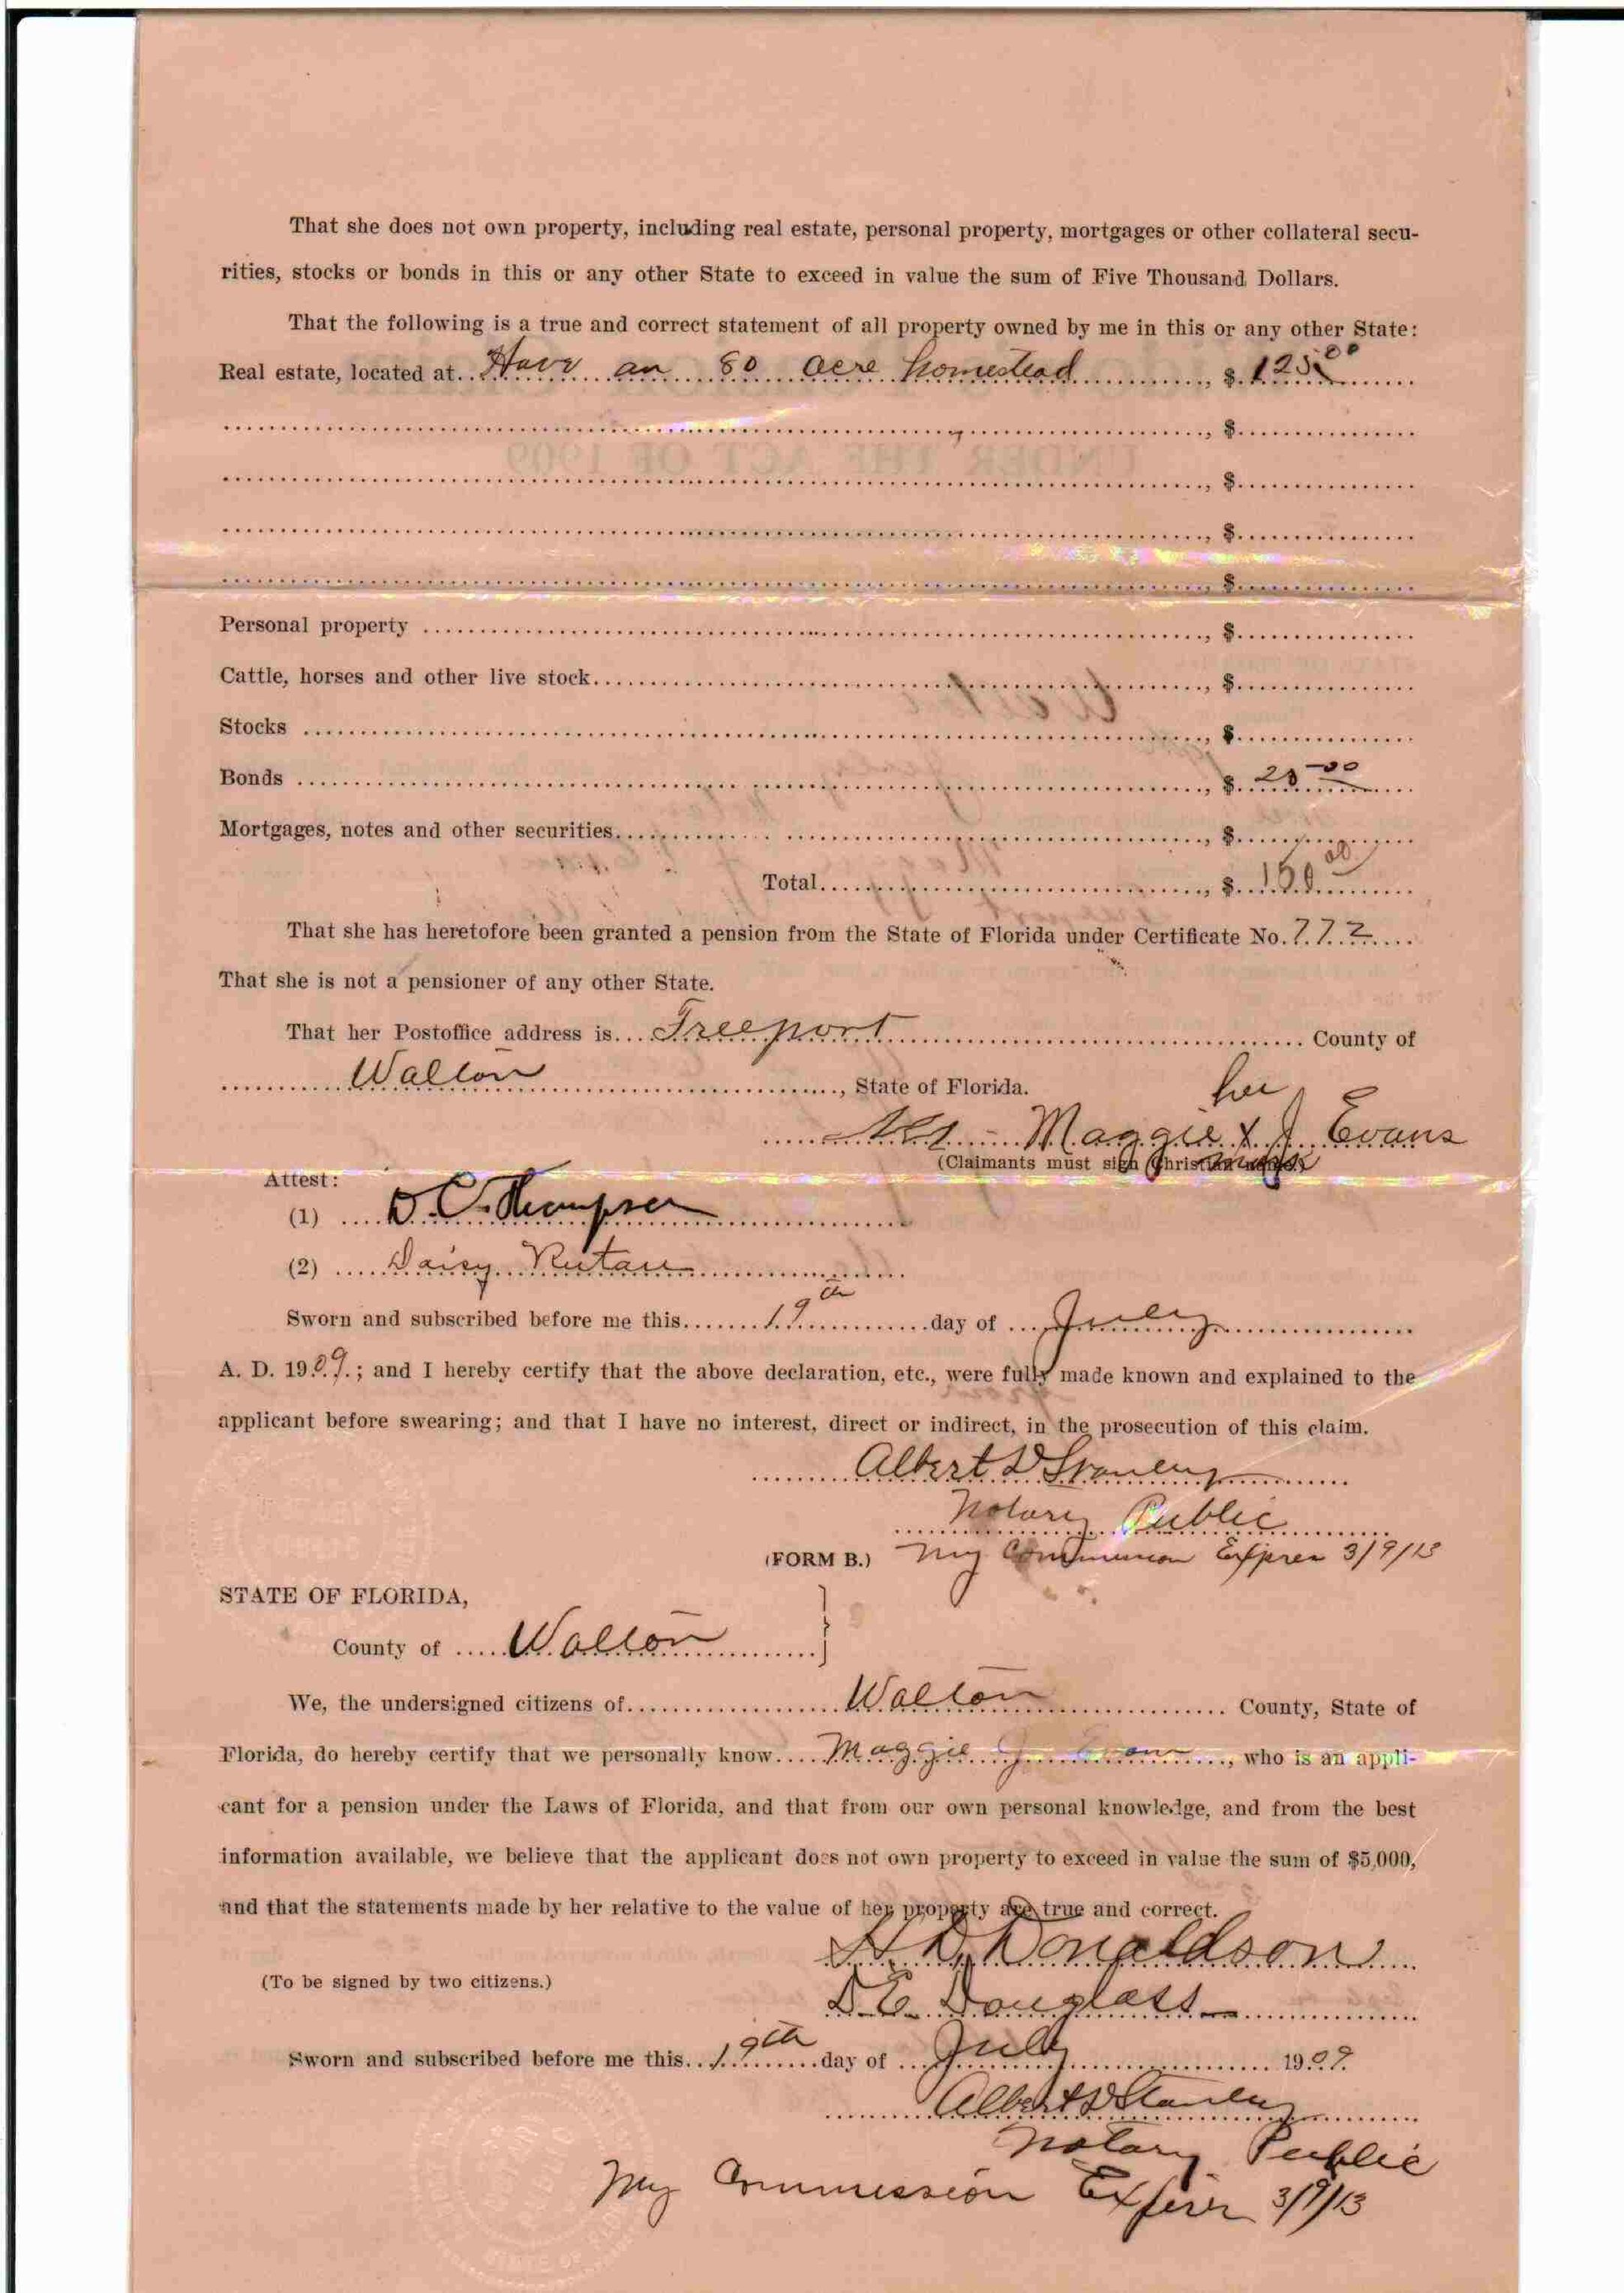 That she does not own property, including real estate, personal property, mortgages or other collateral secu-
rities, stocks or bonds in this or any other State to exceed in value the sum of Five Thousand Dollars.
That the following is a true and correct statement of all property owned by me in this or any other State:
Real estate, located at Have an 80 acre homestead, $ 125 00
UNDER THE ACT OF 1909
, $
, $
, $
, $
Personal property, $
Cattle, horses and other live stock, $
Stocks, $
Bonds, $ 25 00
Mortgages, notes and other securities, $
Total, $ 150 00
That she has heretofore been granted a pension from the State of Florida under Certificate No. 772
That she is not a pensioner of any other State.
That her Postoffice address is Freeport County of
Walton, State of Florida.
her
Maggie x J Evans
mark
(Claimants must sign Christian name.)
Attest:
(1) D. C. Thompson
(2) Daisy
Sworn and subscribed before me this 19th day of July
A. D. 1909; and I hereby certify that the above declaration, etc., were fully made known and explained to the
applicant before swearing; and that I have no interest, direct or indirect, in the prosecution of this claim.
Albert D Stanley
Notary Public
(FORM B.) My Commission Expires 3/9/13
STATE OF FLORIDA,
County of Walton
We, the undersigned citizens of Walton County, State of
Florida, do hereby certify that we personally know Maggie J. Evans, who is an appli-
cant for a pension under the Laws of Florida, and that from our own personal knowledge, and from the best
information available, we believe that the applicant does not own property to exceed in value the sum of $5,000,
and that the statements made by her relative to the value of her property are true and correct.
H. D. Donaldson
(To be signed by two citizens.)
D. E. Douglass
Sworn and subscribed before me this 19th day of July 1909
Albert D Stanley
Notary Public
My Commission Expires 3/9/13